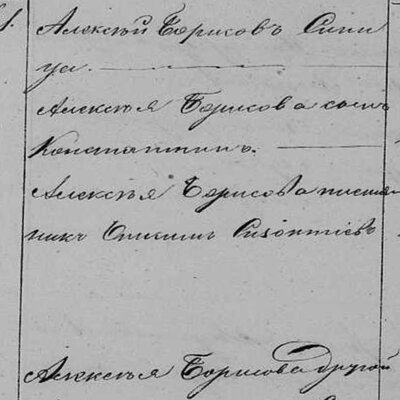 Алексѣй Борисовъ Сини
ца.
Алексѣя Борисова сынъ
Константинъ.
Алексѣя Борисова племян
никъ
Алексѣя Борисова другой